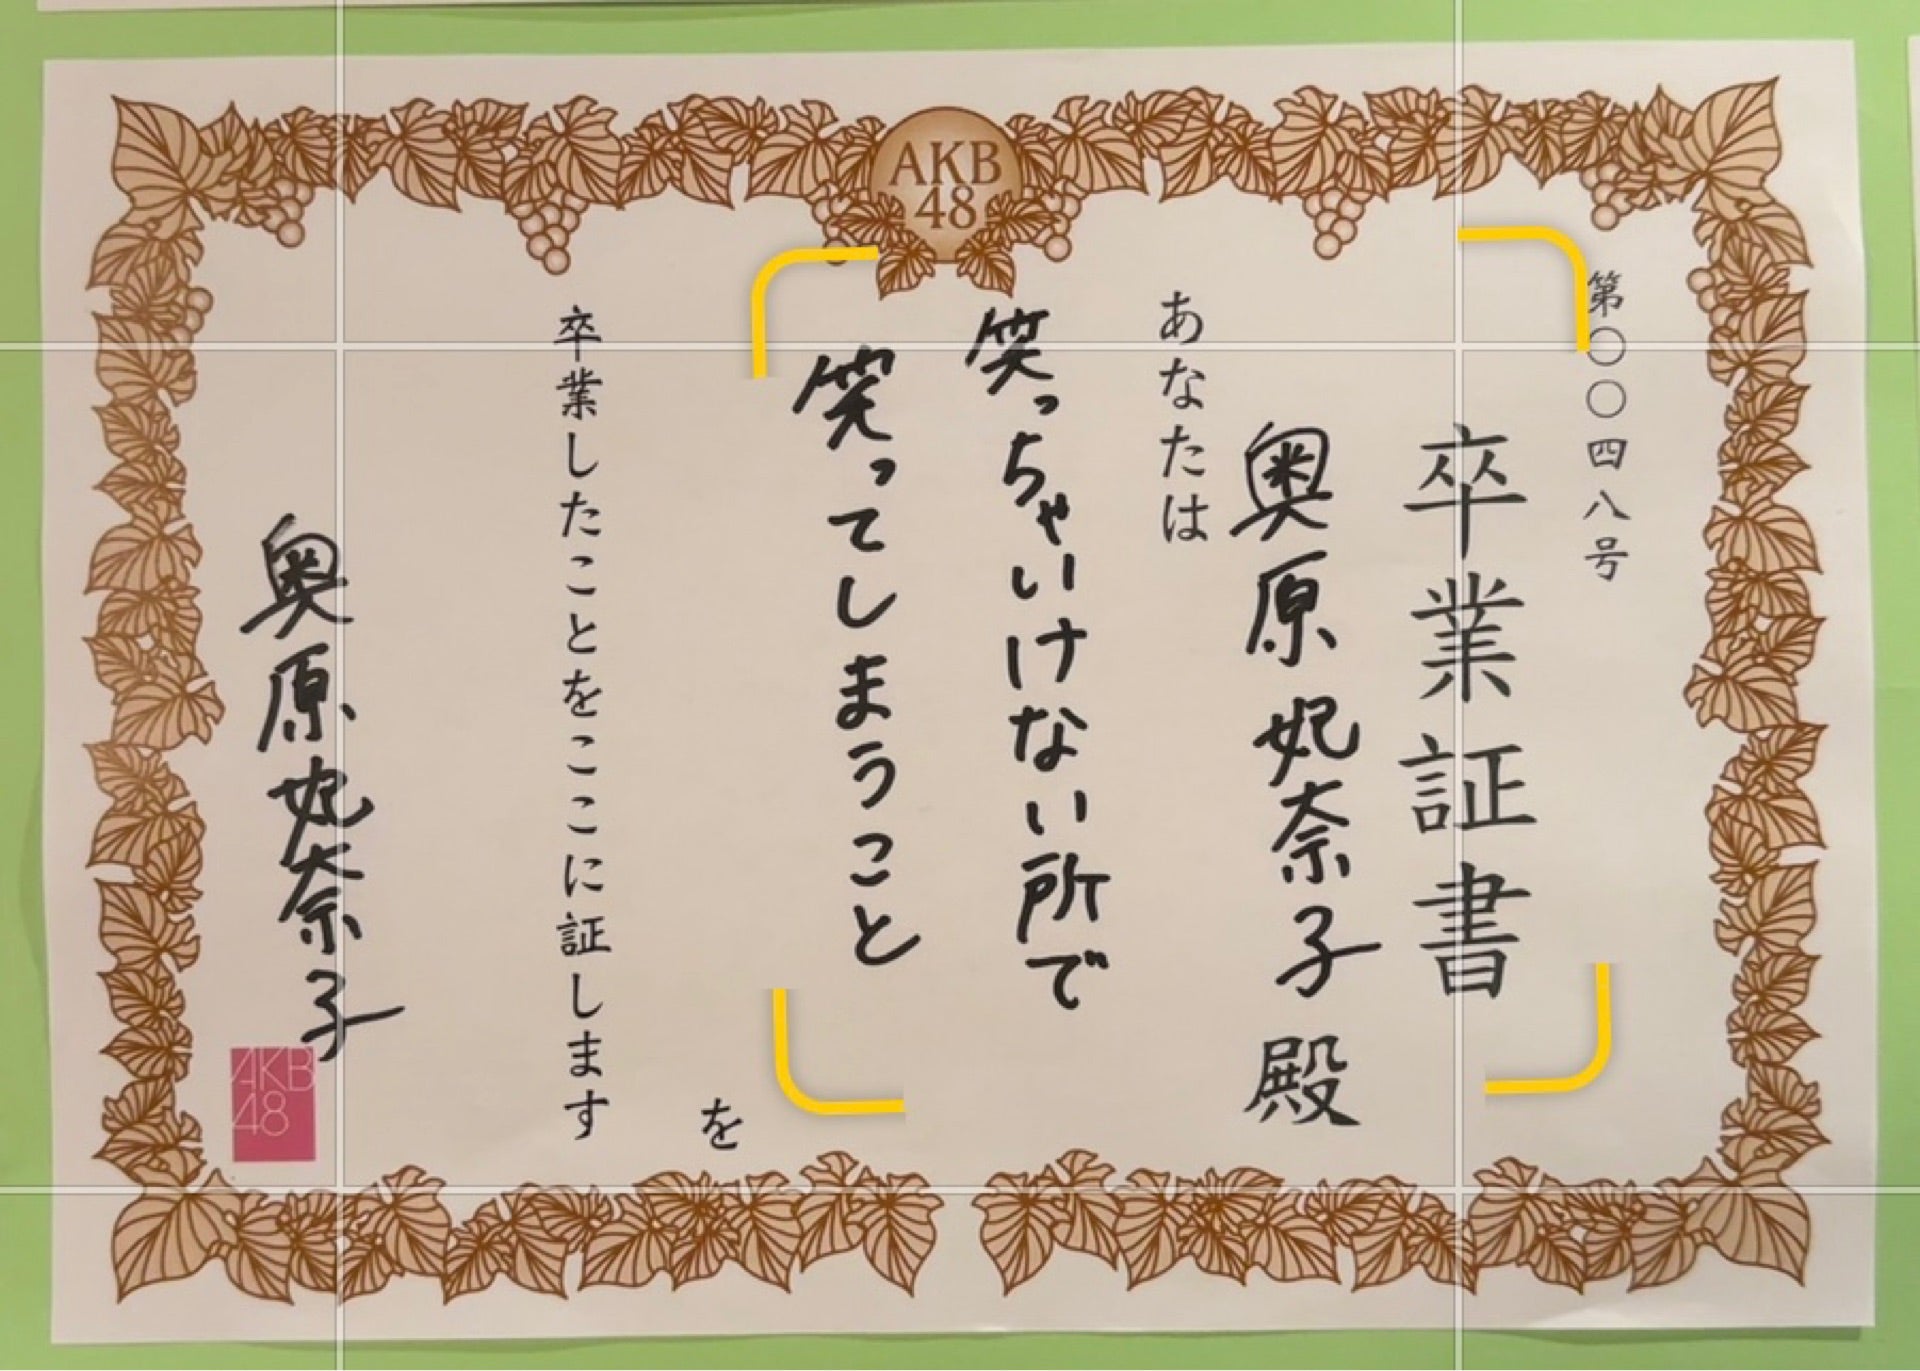 AKB
48
第〇〇四八号
卒業証書
奥原妃奈子殿
あなたは
笑っちゃいけない所で
笑ってしまうこと
を
卒業したことをここに証します
奥原妃奈子
AKB
48